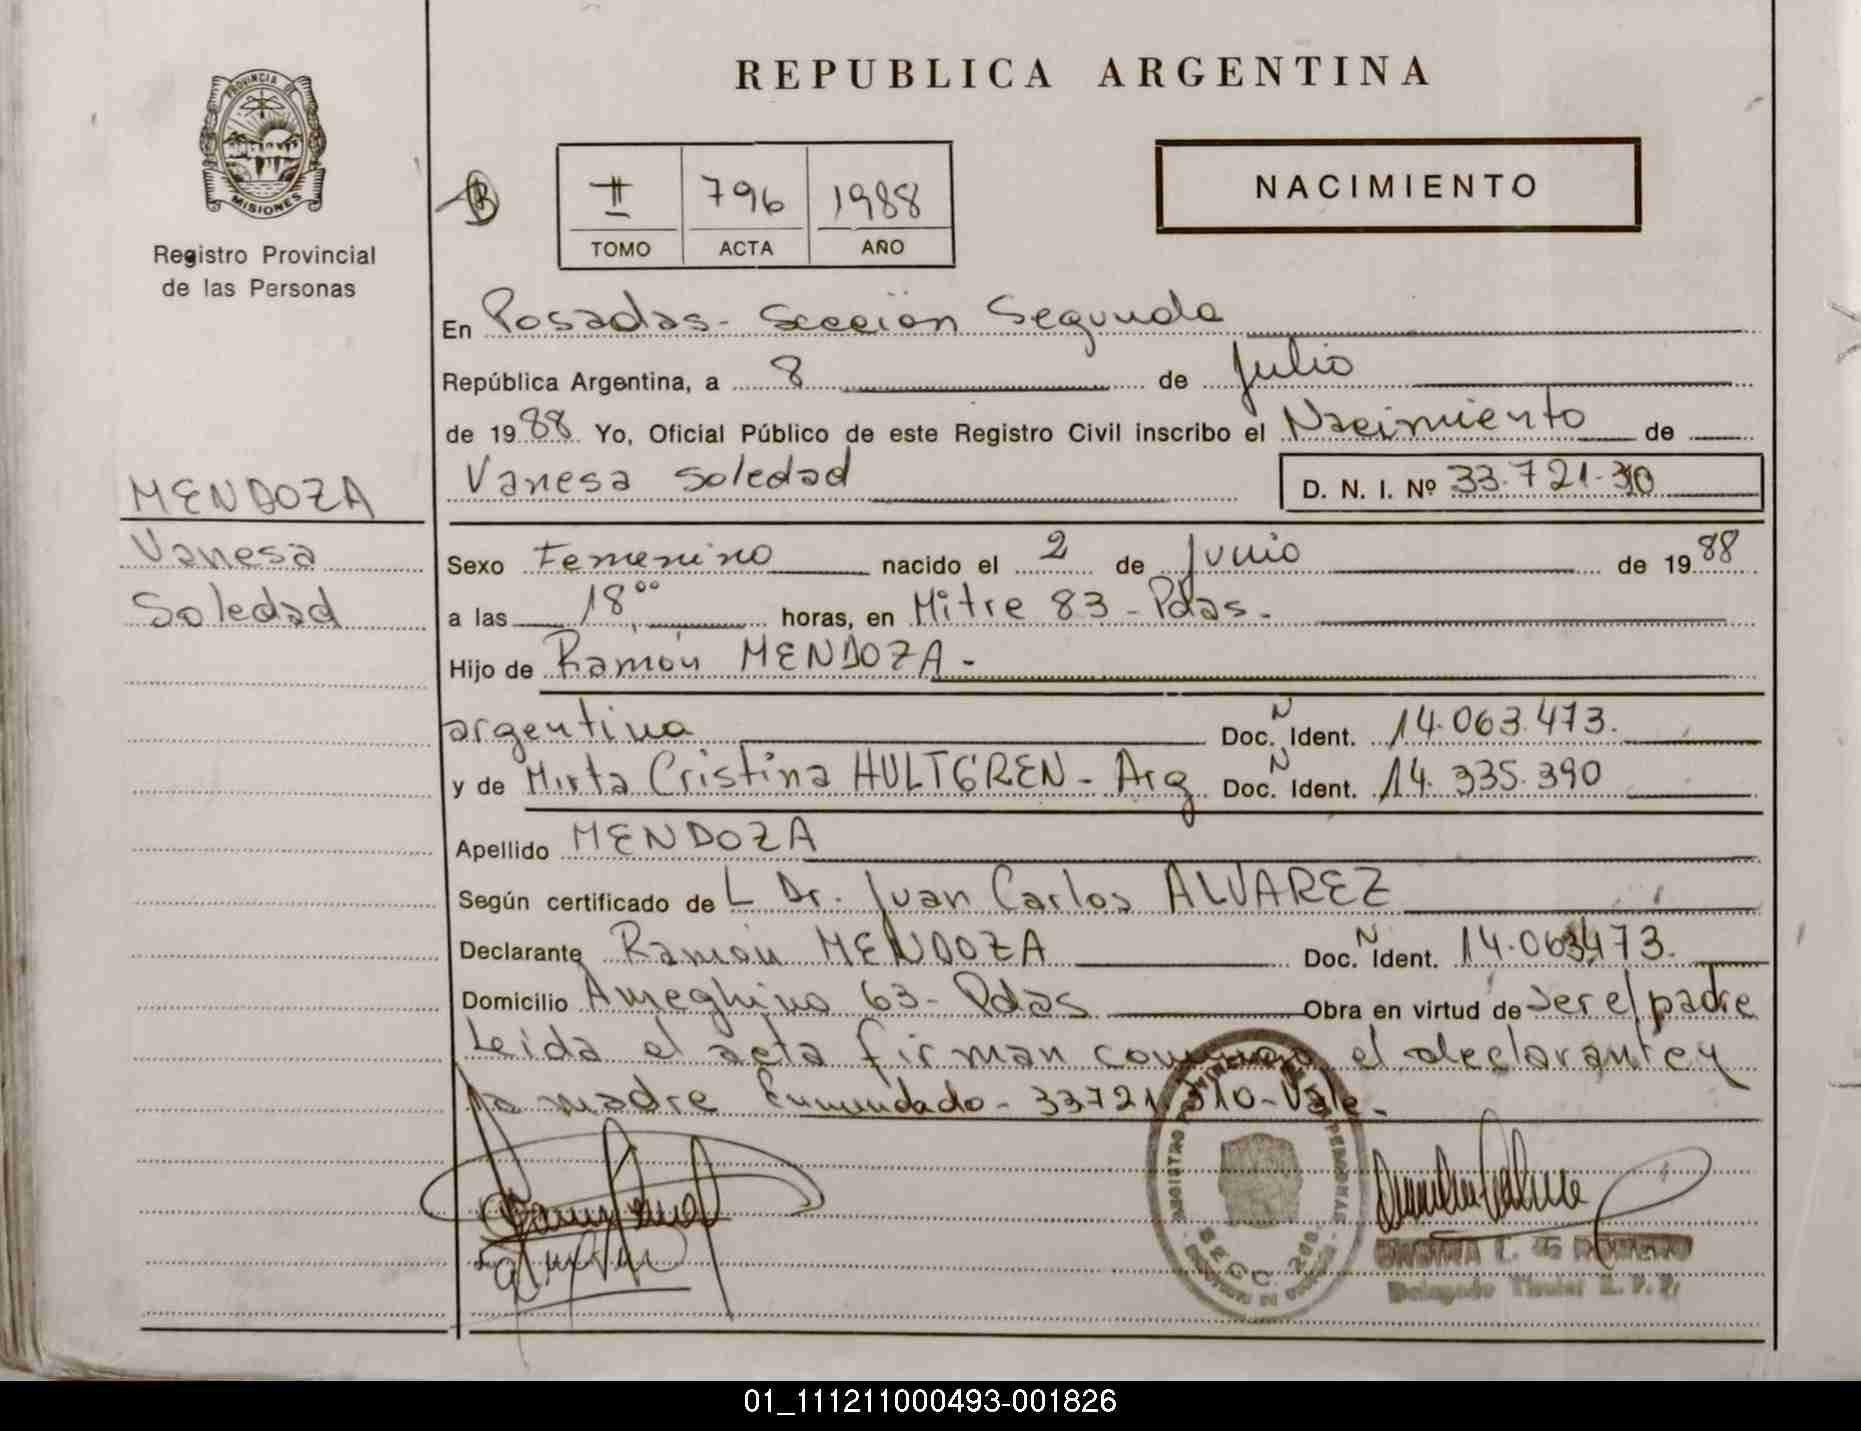 REPUBLICA ARGENTINA
PROVINCIA DE
MISIONES
Registro Provincial
de las Personas
NACIMIENTO
II 796 1988
TOMO ACTA AÑO
En Posadas - Sección Segunda
República Argentina, a 8 de Julio
de 1988 Yo, Oficial Público de este Registro Civil inscribo el Nacimiento de
Vanesa Soledad D. N. I. Nº 33.721.310
MENDOZA
Vanesa
Soledad
Sexo Femenino nacido el 2 de Junio de 1988
a las 18⁰⁰ horas, en Mitre 83 - Pdas -
Hijo de Ramón MENDOZA -
argentina Doc. N Ident. 14.063.473.
y de Mirta Cristina HULTGREN - Arg Doc. N Ident. 14.335.390
Apellido MENDOZA
Según certificado de L Dr. Juan Carlos ALVAREZ
Declarante Ramón MENDOZA Doc. N Ident. 14.063.473.
Domicilio Ameghino 63 - Pdas Obra en virtud de ser el padre
Leida el acta firman conmigo el declarante y
la madre Enmendado - 33721.310 - Vale -
SECC. 2da.
ROMERO
Delegado Titular R. P. P.
01_111211000493-001826